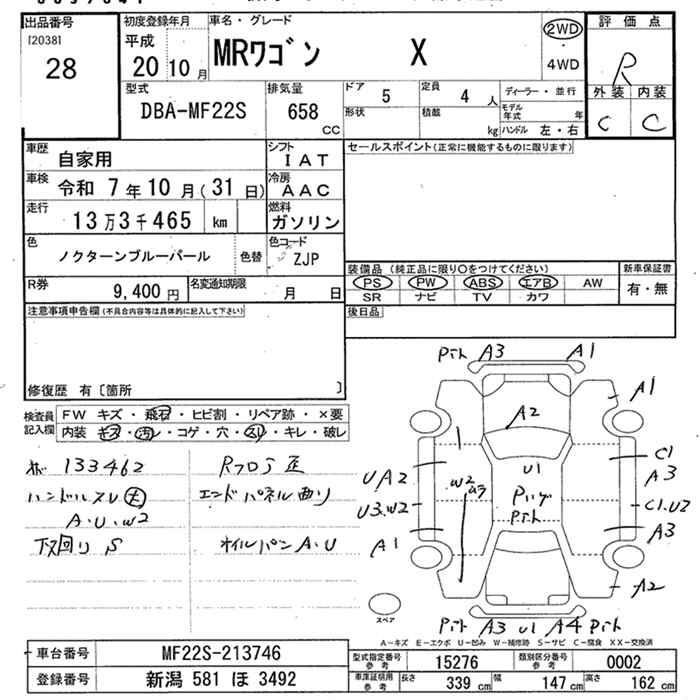 出品番号
[2038]
28
初度登録年月
平成
20 10 月
車名・グレード
MRワゴン X
2WD
・
4WD
評価点
R
外装 内装
C C
型式
DBA-MF22S
排気量
658
CC
ドア 5
定員 4 人
形状
積載 kg
ディーラー・並行
モデル年式 年
ハンドル 左・右
車歴 自家用
シフト IAT
車検 令和 7年10月(31日)
冷房 AAC
走行 13万3千465 km
燃料 ガソリン
色 ノクターンブルーパール
色替
色コード ZJP
R券 9,400 円
名変通知期限 月 日
セールスポイント(正常に機能するものに限ります)
装備品 (純正品に限り○をつけてください)
新車保証書
PS PW ABS エアB AW
有・無
SR ナビ TV カワ
後日品
注意事項申告欄(不具合内容等は具体的に記入して下さい)
修復歴 有〔箇所 〕
検査員記入欄
FW キズ・飛石・ヒビ割・リペア跡・×要
内装 キズ・汚レ・コゲ・穴・スレ・キレ・破レ
133462
Rフロア 歪
ハンドルスレ 大
エンドパネル 曲り
A・U・W2
下回り S
オイルパン A・U
A3 A1
A1
A2
U1
C1
A3
UA2
W2
U3.W2
C1.U2
A3
A1
A2
スペア
A3 U1 A4
A-キズ E-エクボ U-凹み W-補修跡 S-サビ C-腐食 XX-交換済
車台番号 MF22S-213746
登録番号 新潟 581 ほ 3492
型式指定番号 参考 15276
類別区分番号 参考 0002
車庫証明用 参考 長さ 339 cm 幅 147 cm 高さ 162 cm